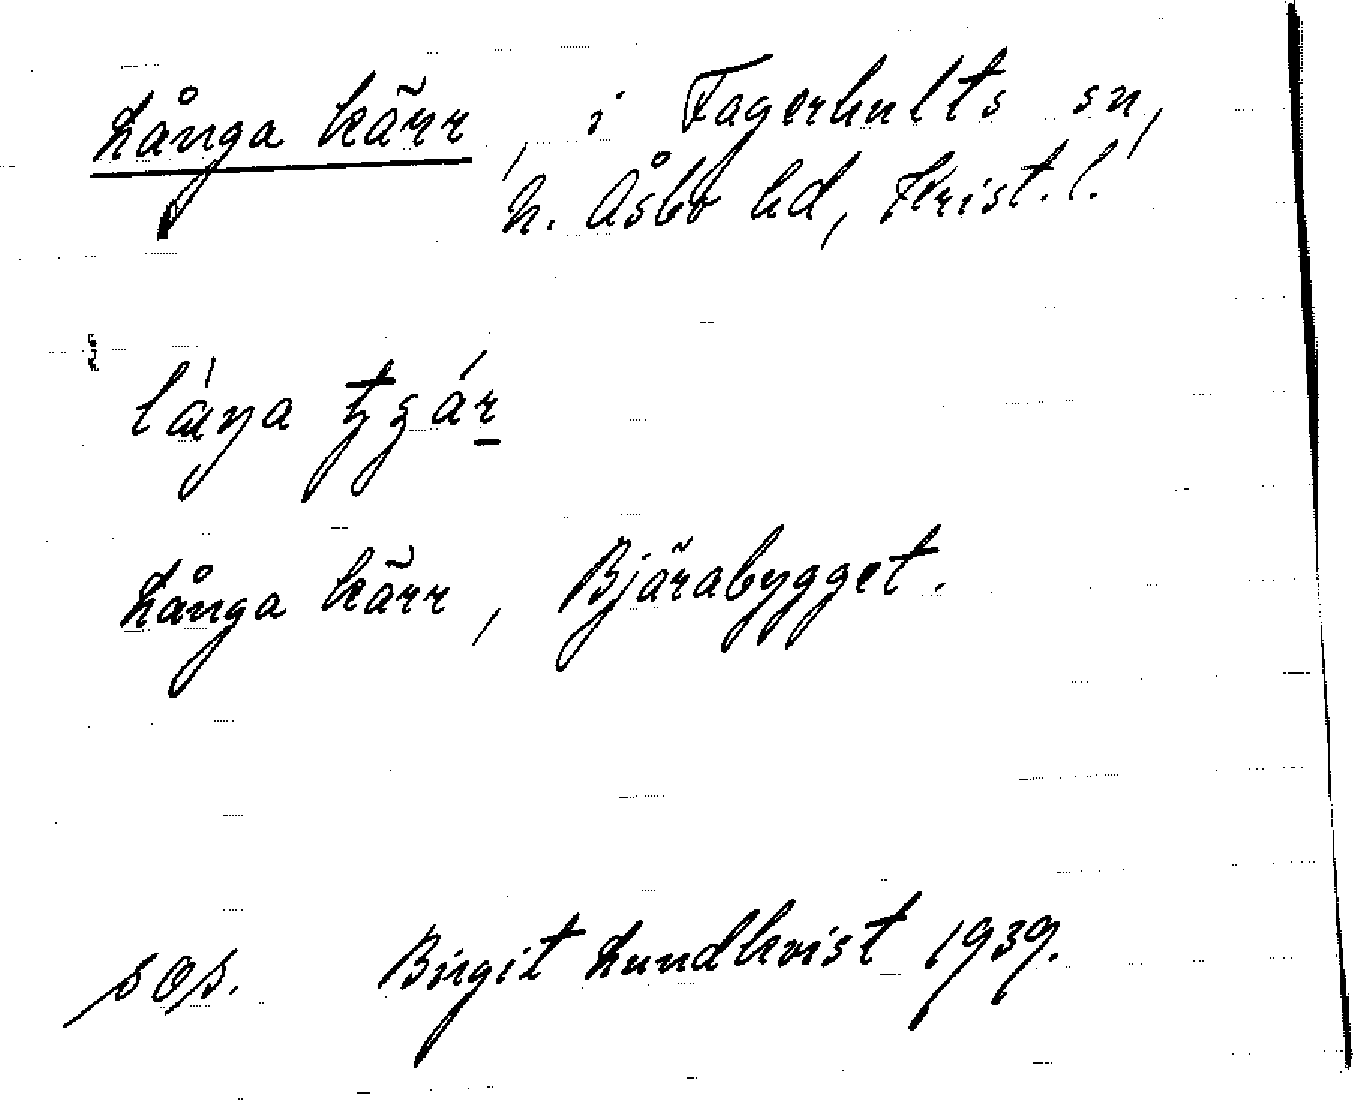 Långa kärr, i Fagerhults sn,
N. Åsbo hd, Krist. l.
Långa kärr, Bjärabygget.
sos. Birgit Lundkvist 1939.